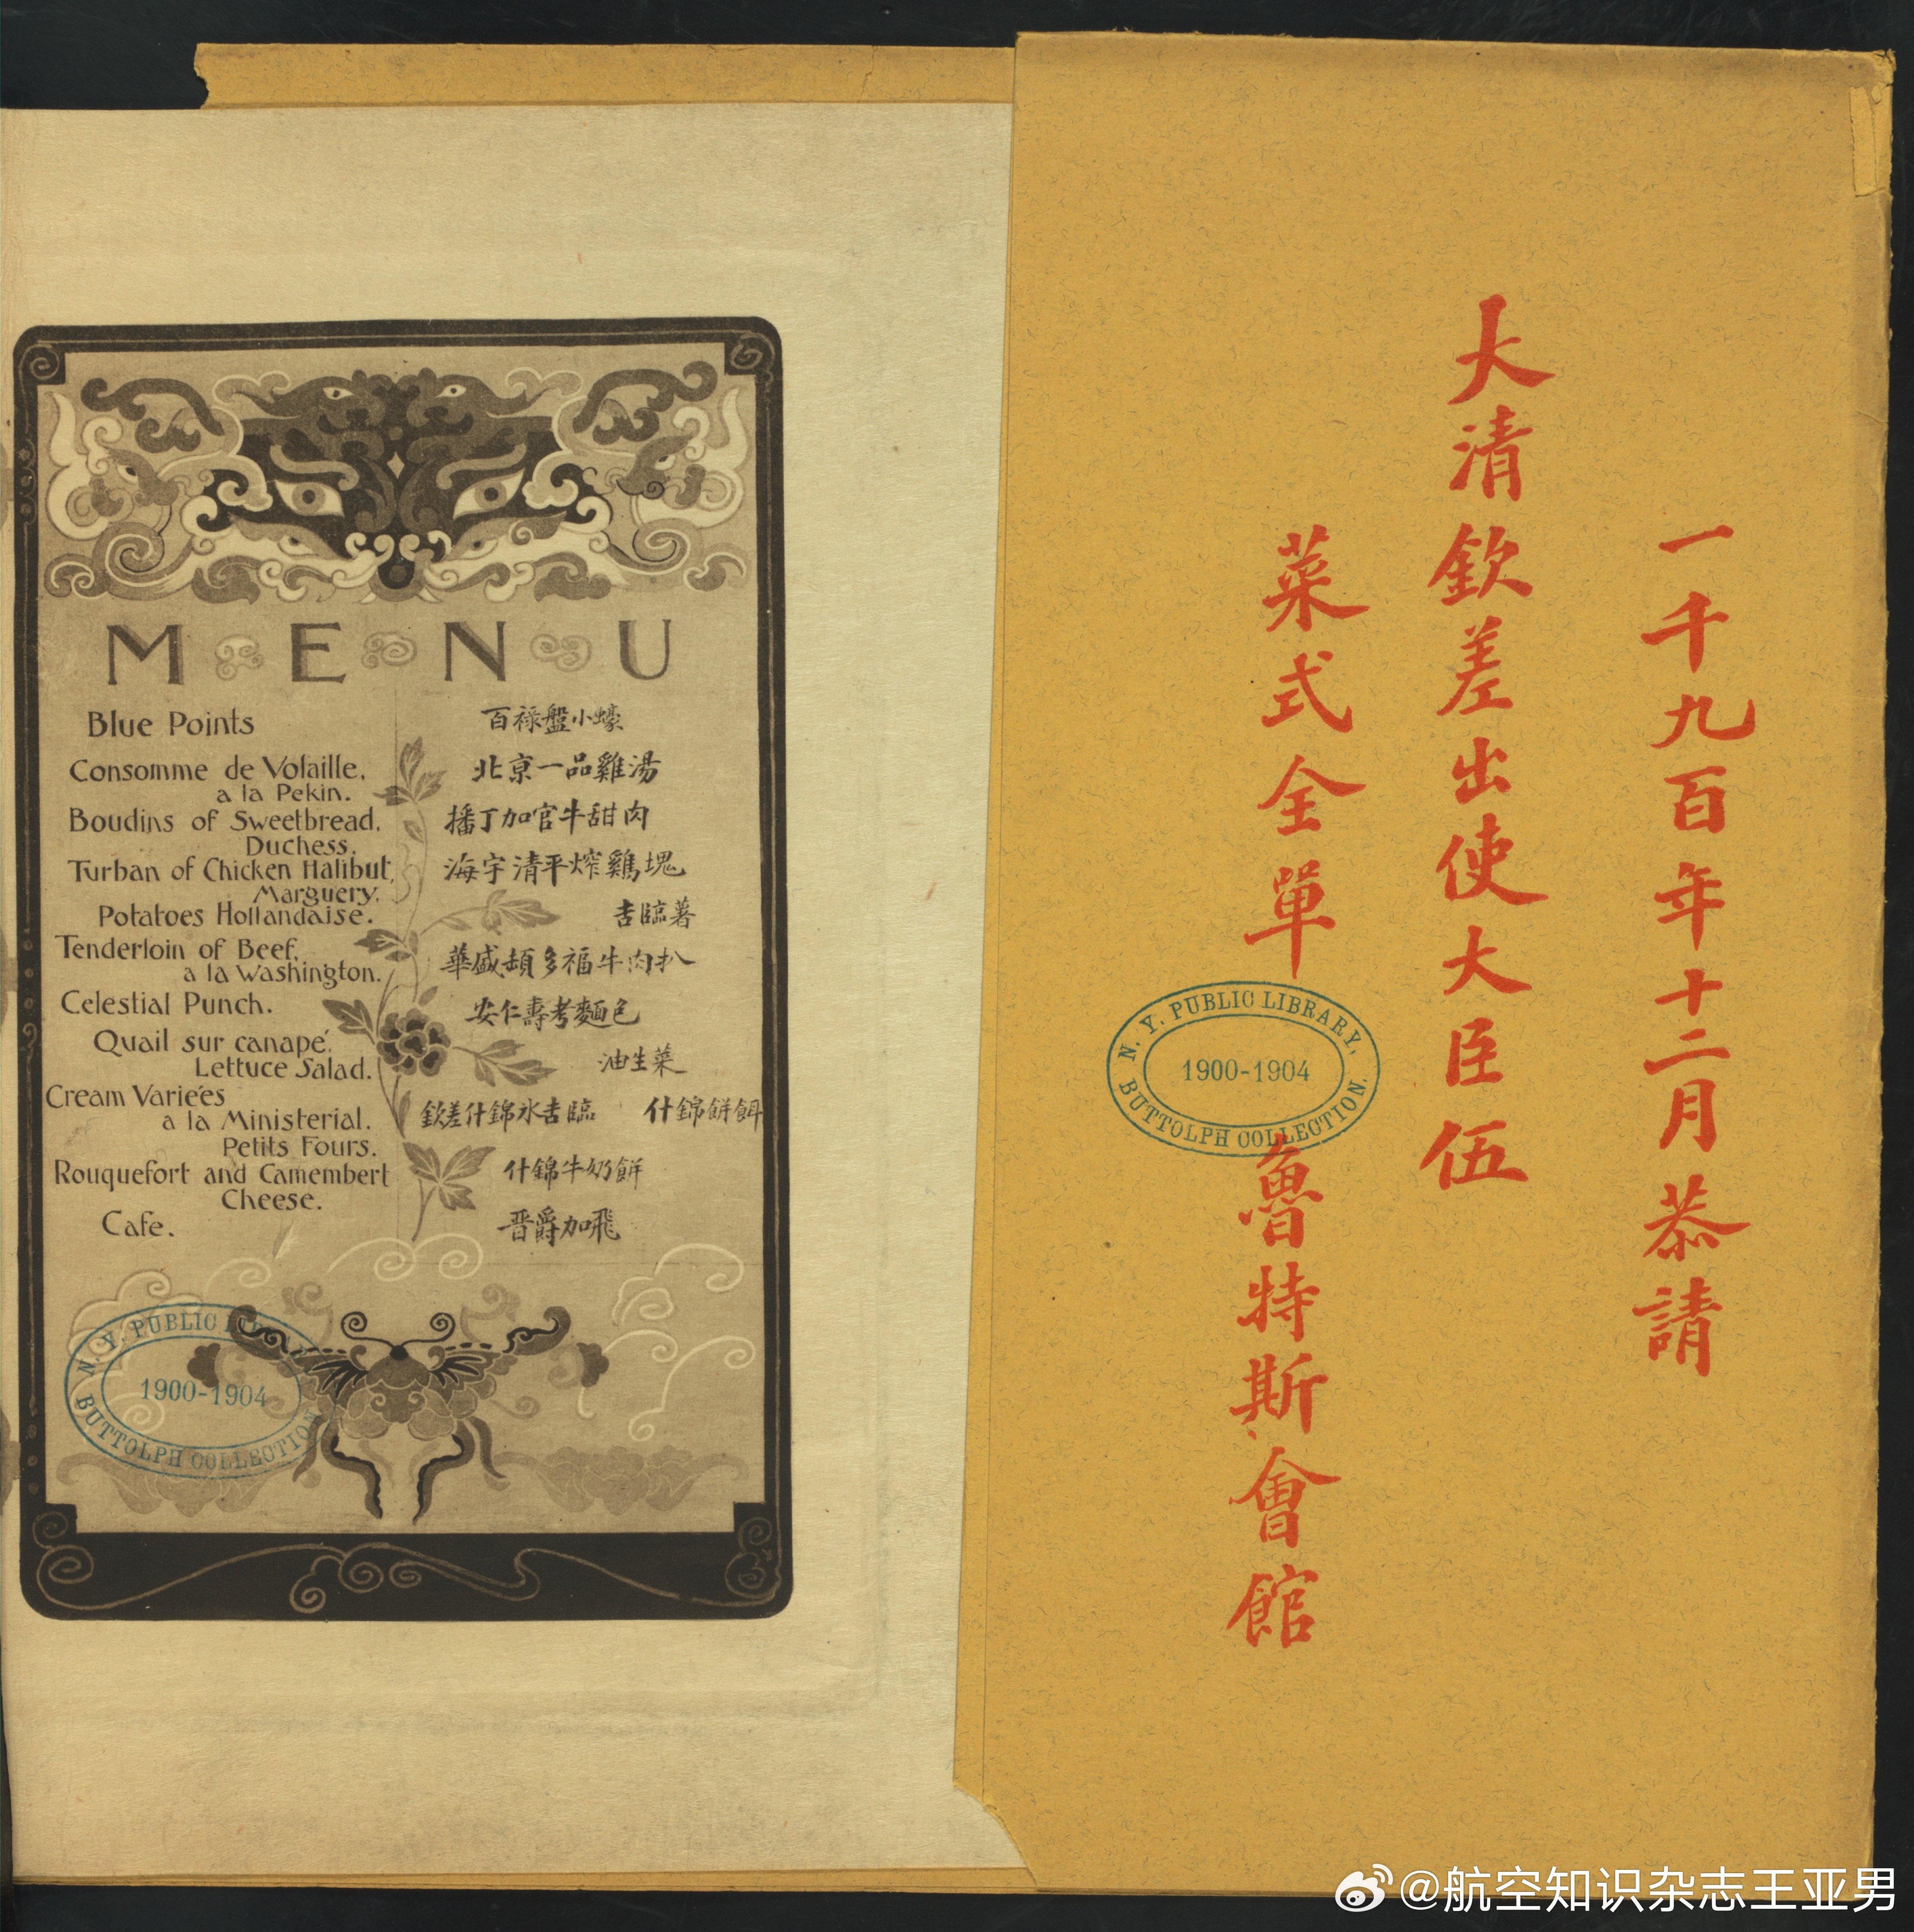 MENU
Blue Points 百祿盤小蠔
Consomme de Volaille, 北京一品雞湯
a la Pekin.
Boudins of Sweetbread, 播丁加官牛甜肉
Duchess.
Turban of Chicken Halibut, 海宇清平炸雞塊
Marguery.
Potatoes Hollandaise. 吉臨薯
Tenderloin of Beef, 華盛頓多福牛肉扒
a la Washington.
Celestial Punch. 安仁壽考麵包
Quail sur canapé.
Lettuce Salad. 油生菜
Cream Variées
a la Ministerial. 欽差什錦氷吉臨 什錦餅餌
Petits Fours.
Rouquefort and Camembert 什錦牛奶餅
Cheese.
Cafe. 晋爵加啡
N. Y. PUBLIC
1900-1904
BUTTOLPH COLLECTION
一千九百年十二月恭請
大清欽差出使大臣伍
菜式全單 魯特斯會館
N. Y. PUBLIC LIBRARY,
1900-1904
BUTTOLPH COLLECTION.
@航空知识杂志王亚男